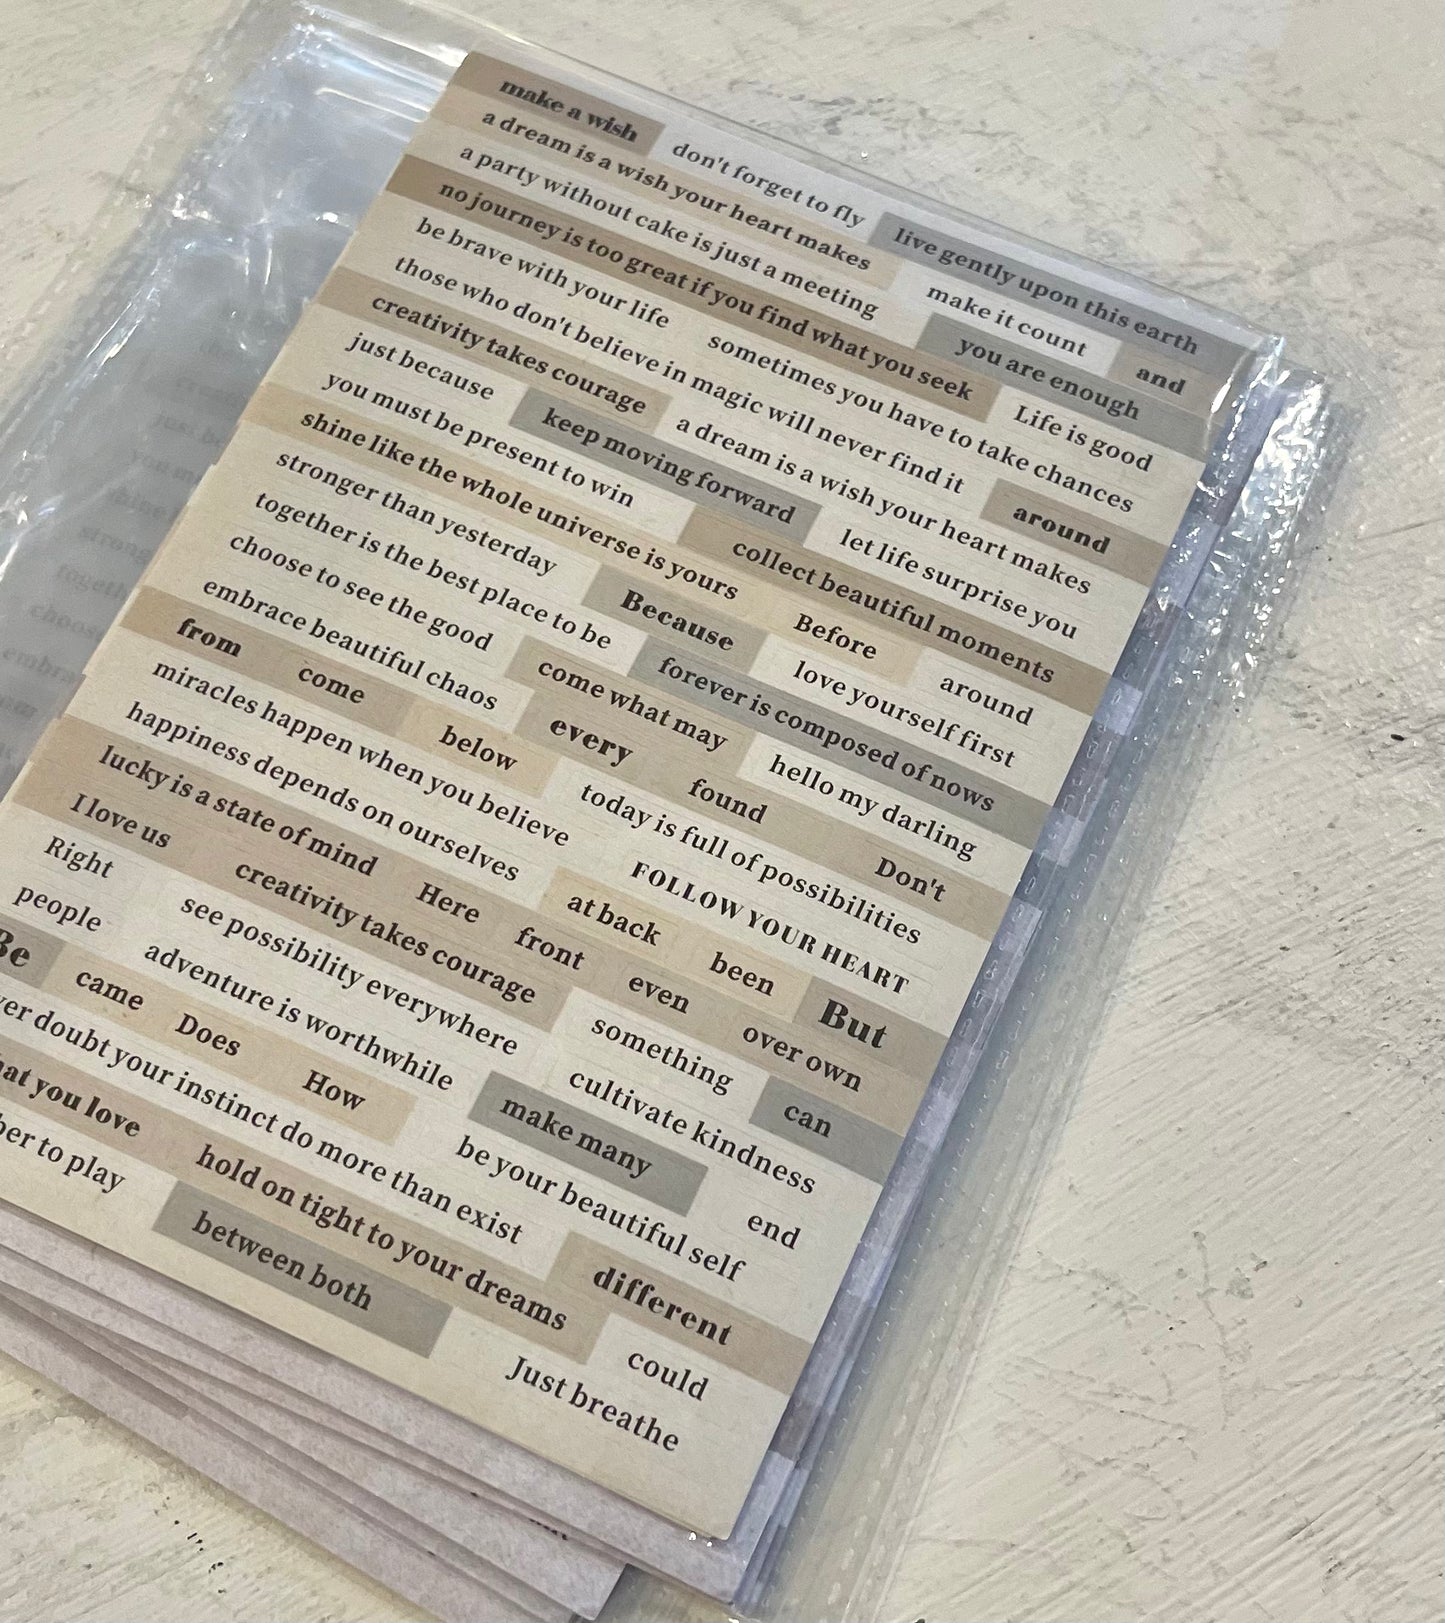 make a wish don't forget to fly live gently upon this earth
a dream is a wish your heart makes make it count and
a party without cake is just a meeting you are enough
no journey is too great if you find what you seek Life is good
be brave with your life sometimes you have to take chances
those who don't believe in magic will never find it around
creativity takes courage a dream is a wish your heart makes
just because keep moving forward let life surprise you
you must be present to win collect beautiful moments
shine like the whole universe is yours Before around
stronger than yesterday Because love yourself first
together is the best place to be forever is composed of nows
choose to see the good come what may hello my darling
embrace beautiful chaos every found Don't
from come below today is full of possibilities
miracles happen when you believe FOLLOW YOUR HEART
happiness depends on ourselves at back been But
lucky is a state of mind Here front even over own
I love us creativity takes courage something can
Right see possibility everywhere cultivate kindness
people adventure is worthwhile make many end
Be came Does How be your beautiful self
doubt your instinct do more than exist different
you love hold on tight to your dreams could
to play between both Just breathe